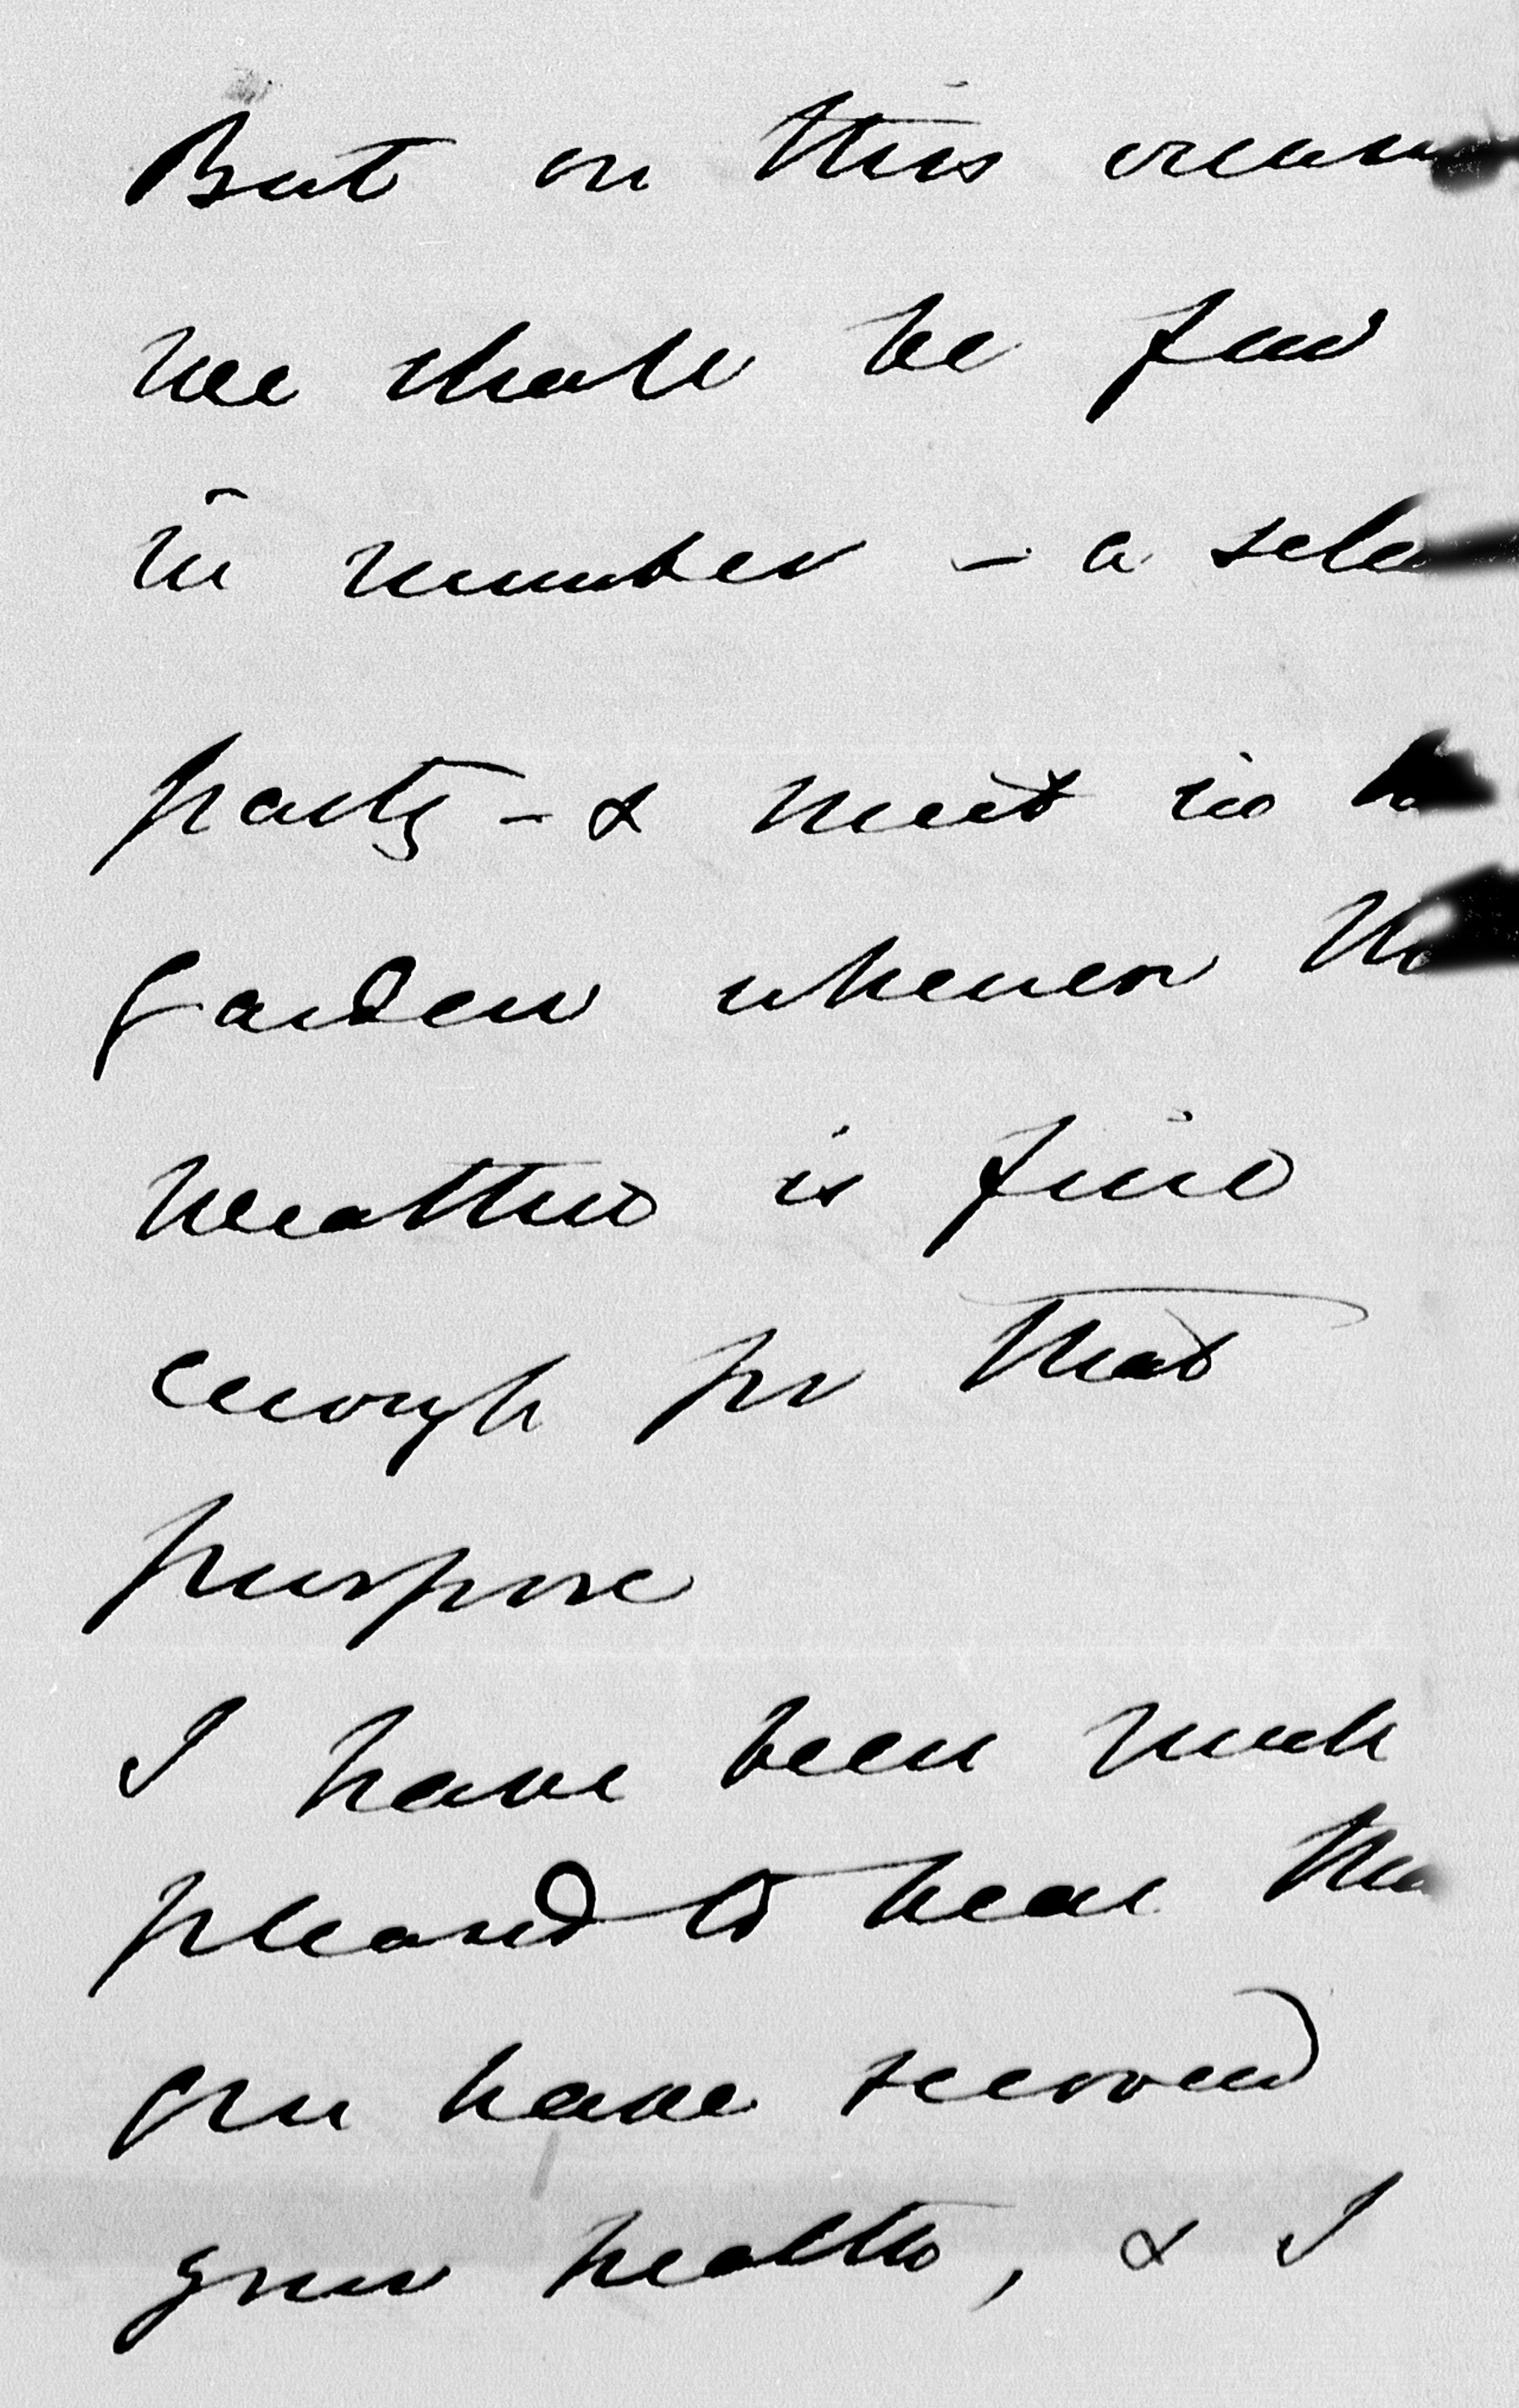 But on this
we shall be few
in number - a
party - & meet in
Garden whenever
weather is fine
enough for that
purpose
I have been much
pleased to hear
you have
your health, & I